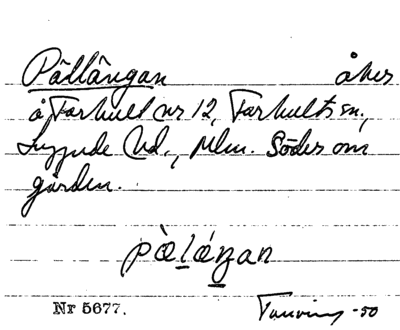 Pällängan åker
å Farhult nr 12, Farhults sn.,
Luggude hd., Mlm. Söder om
gården.
pæ̀láŋan
Nr 5677. -50